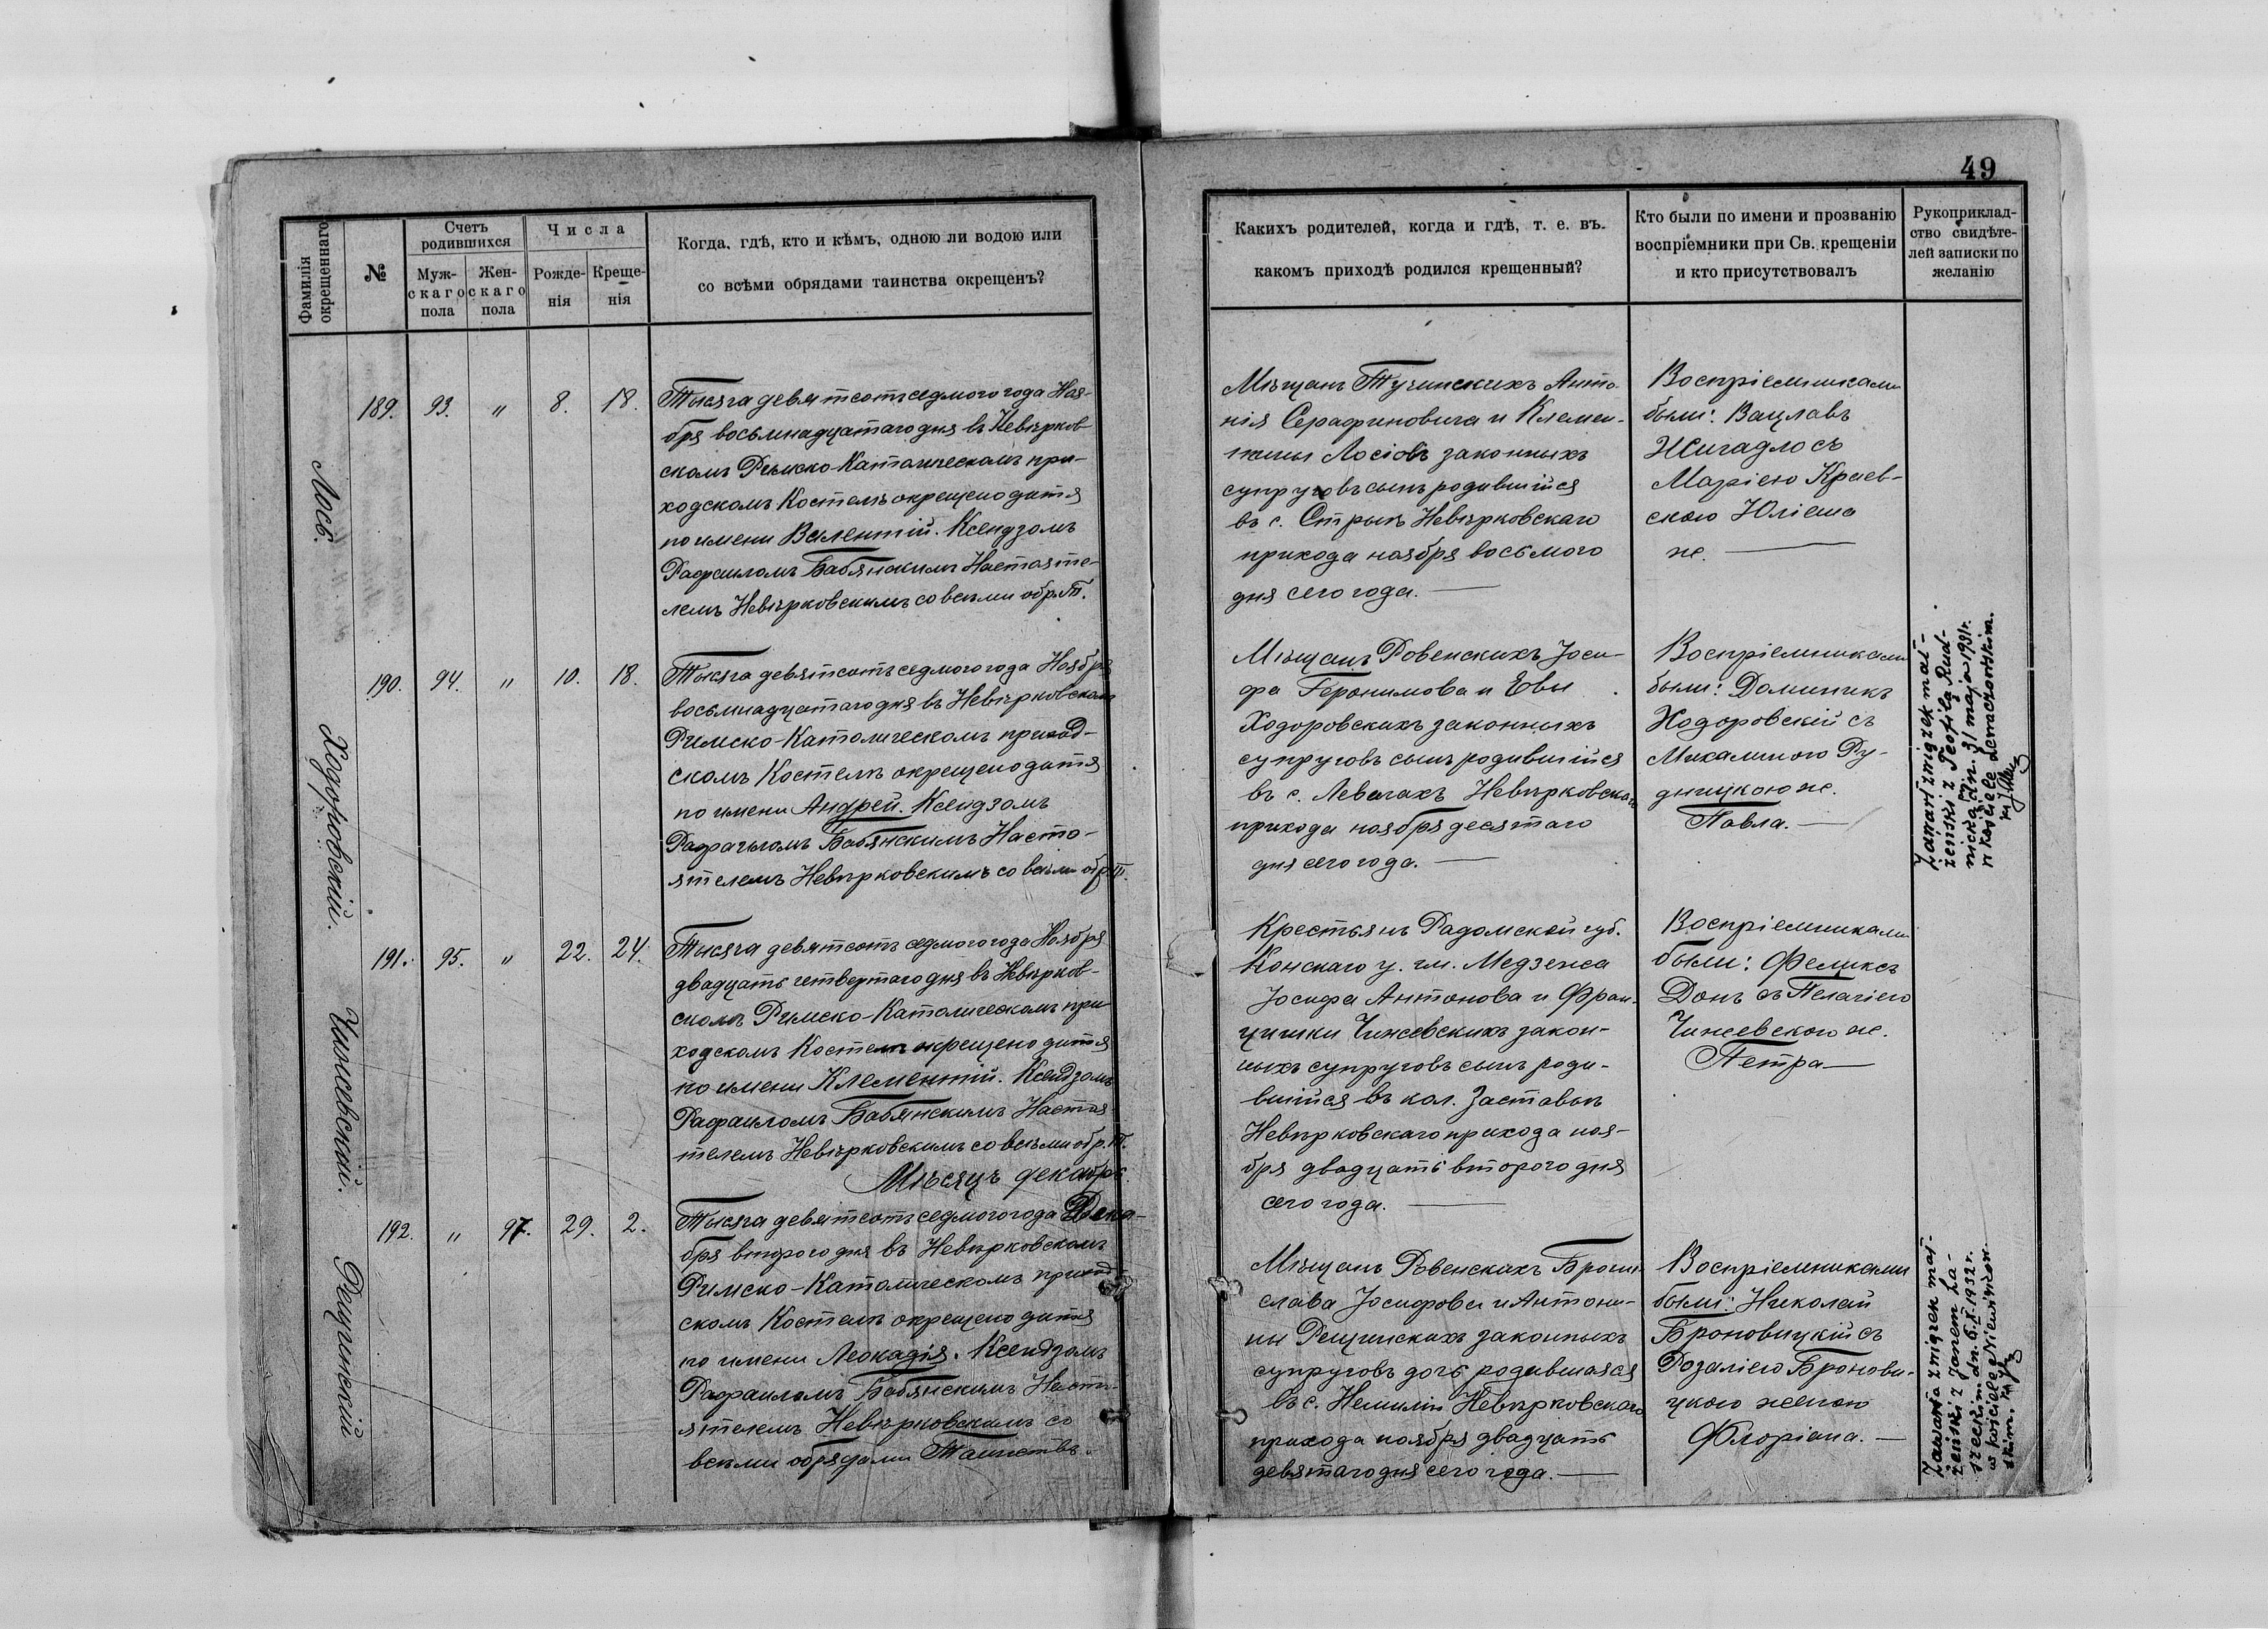 49
Фамилія окрещеннаго
№
Счетъ родившихся
Муж-
скаго
пола
Жен-
скаго
пола
Числа
Рожде-
нія
Креще-
нія
Когда, гдѣ, кто и кѣмъ, одною ли водою или
со всѣми обрядами таинства окрещенъ?
Какихъ родителей, когда и гдѣ, т. е. въ.
какомъ приходѣ родился крещенный?
Кто были по имени и прозванію
воспріемники при Св. крещеніи
и кто присутствовалъ
Рукоприклад-
ство свидѣте-
лей записки по
желанію
Лось.
189. 93. " 8. 18.
Тысяча девятсотъ седмого года Ноя-
бря восьмнадцатаго дня въ Невѣрков-
скомъ Римско-Католическомъ при-
ходскомъ Костелѣ окрещено дитя
по имени Валентій. Ксендзомъ
Рафаиломъ Бабянскимъ Настояте-
лемъ Невѣрковскимъ со всѣми обр. Т.
Мѣщанъ Тучинскихъ Анто-
нія Серафиновича и Клемен-
тины Лосіовъ законныхъ
супруговъ сынъ родившійся
въ с. Стрыѣ Невѣрковскаго
прихода ноября восьмого
дня сего года.
Воспріемниками
были: Вацлавъ
Жигадло съ
Маріею Краев-
скою Юліана
ж.
Ходоровскій.
190. 94. " 10. 18.
Тысяча девятсотъ седмого года Ноября
восьмнадцатаго дня въ Невѣрковскомъ
Римско-Католическомъ приход-
скомъ Костелѣ окрещено дитя
по имени Андрей. Ксендзомъ
Рафаиломъ Бабянскимъ Насто-
ятелемъ Невѣрковскимъ со всѣми обр. Т.
Мѣщанъ Ровенскихъ Іоси-
фа Геронимова и Евы
Ходоровскихъ законныхъ
супруговъ сынъ родившійся
въ с. Левачахъ Невѣрковскаго
прихода ноября десятаго
дня сего года.
Воспріемниками
были: Доминикъ
Ходоровскій съ
Михалиною Ру-
дницкою ж.
Павла.
Zawarł związek mał-
żeński z Teofilą Rud-
nicką dn. 31 maja 1931 r.
w kościele Lewaczowskim.
Чижевскій.
191. 95. " 22. 24.
Тысяча девятсотъ седмого года Ноября
двадцать четвертаго дня въ Невѣрков-
скомъ Римско-Католическомъ при-
ходскомъ Костелѣ окрещено дитя
по имени Клементій. Ксендзомъ
Рафаиломъ Бабянскимъ Настоя-
телемъ Невѣрковскимъ со всѣми обр. Т.
Крестьянъ Радомской губ.
Конскаго у. гм. Медзежа
Іосифа Антонова и Фран-
цишки Чижевскихъ закон-
ныхъ супруговъ сынъ роди-
вшійся въ кол. Заставьѣ
Невѣрковскаго прихода ноя-
бря двадцать второго дня
сего года.
Воспріемниками
были: Феликсъ
Донъ съ Пелагіею
Чижевскою ж.
Петра
Мѣсяцъ декабрь.
Рещинскій
192. " 97. 29. 2.
Тысяча девятсотъ седмого года Дека-
бря второго дня въ Невѣрковскомъ
Римско-Католическомъ приход-
скомъ Костелѣ окрещено дитя
по имени Леокадія. Ксендзомъ
Рафаиломъ Бабянскимъ Насто-
ятелемъ Невѣрковскимъ со
всѣми обрядами Таинствъ.
Мѣщанъ Ровенскихъ Брони-
слава Іосифова и Антони-
ны Рещинскихъ законныхъ
супруговъ дочь родившаяся
въ с. Немилій Невѣрковскаго
прихода ноября двадцать
девятаго дня сего года.
Воспріемниками
были: Николай
Броновицкій съ
Розаліею Бронови-
цкою женою
Флоріана.
Zawarła związek mał-
żeński z Janem Za-
dn. 6.X.1932 r.
w kościele Niewirkow-
skim.